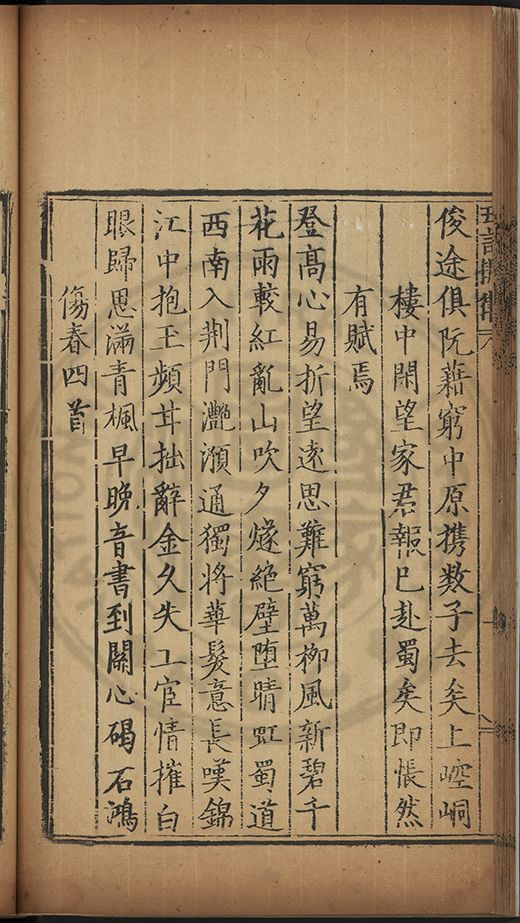 俊途俱阮藉窮中原携数子去矣上崆峒
樓中閑望家君報已赴蜀矣即悵然
有賦焉
登髙心易折望遠思難窮萬柳風新碧千
花雨較紅亂山吹夕燧絶壁堕晴虹蜀道
西南入荆門灔澦通獨將華髮意長嘆錦
江中抱玉頻茸拙辭金久失工宦情摧白
眼歸思滿青楓早晚音書到關心碣石鴻
傷春四首